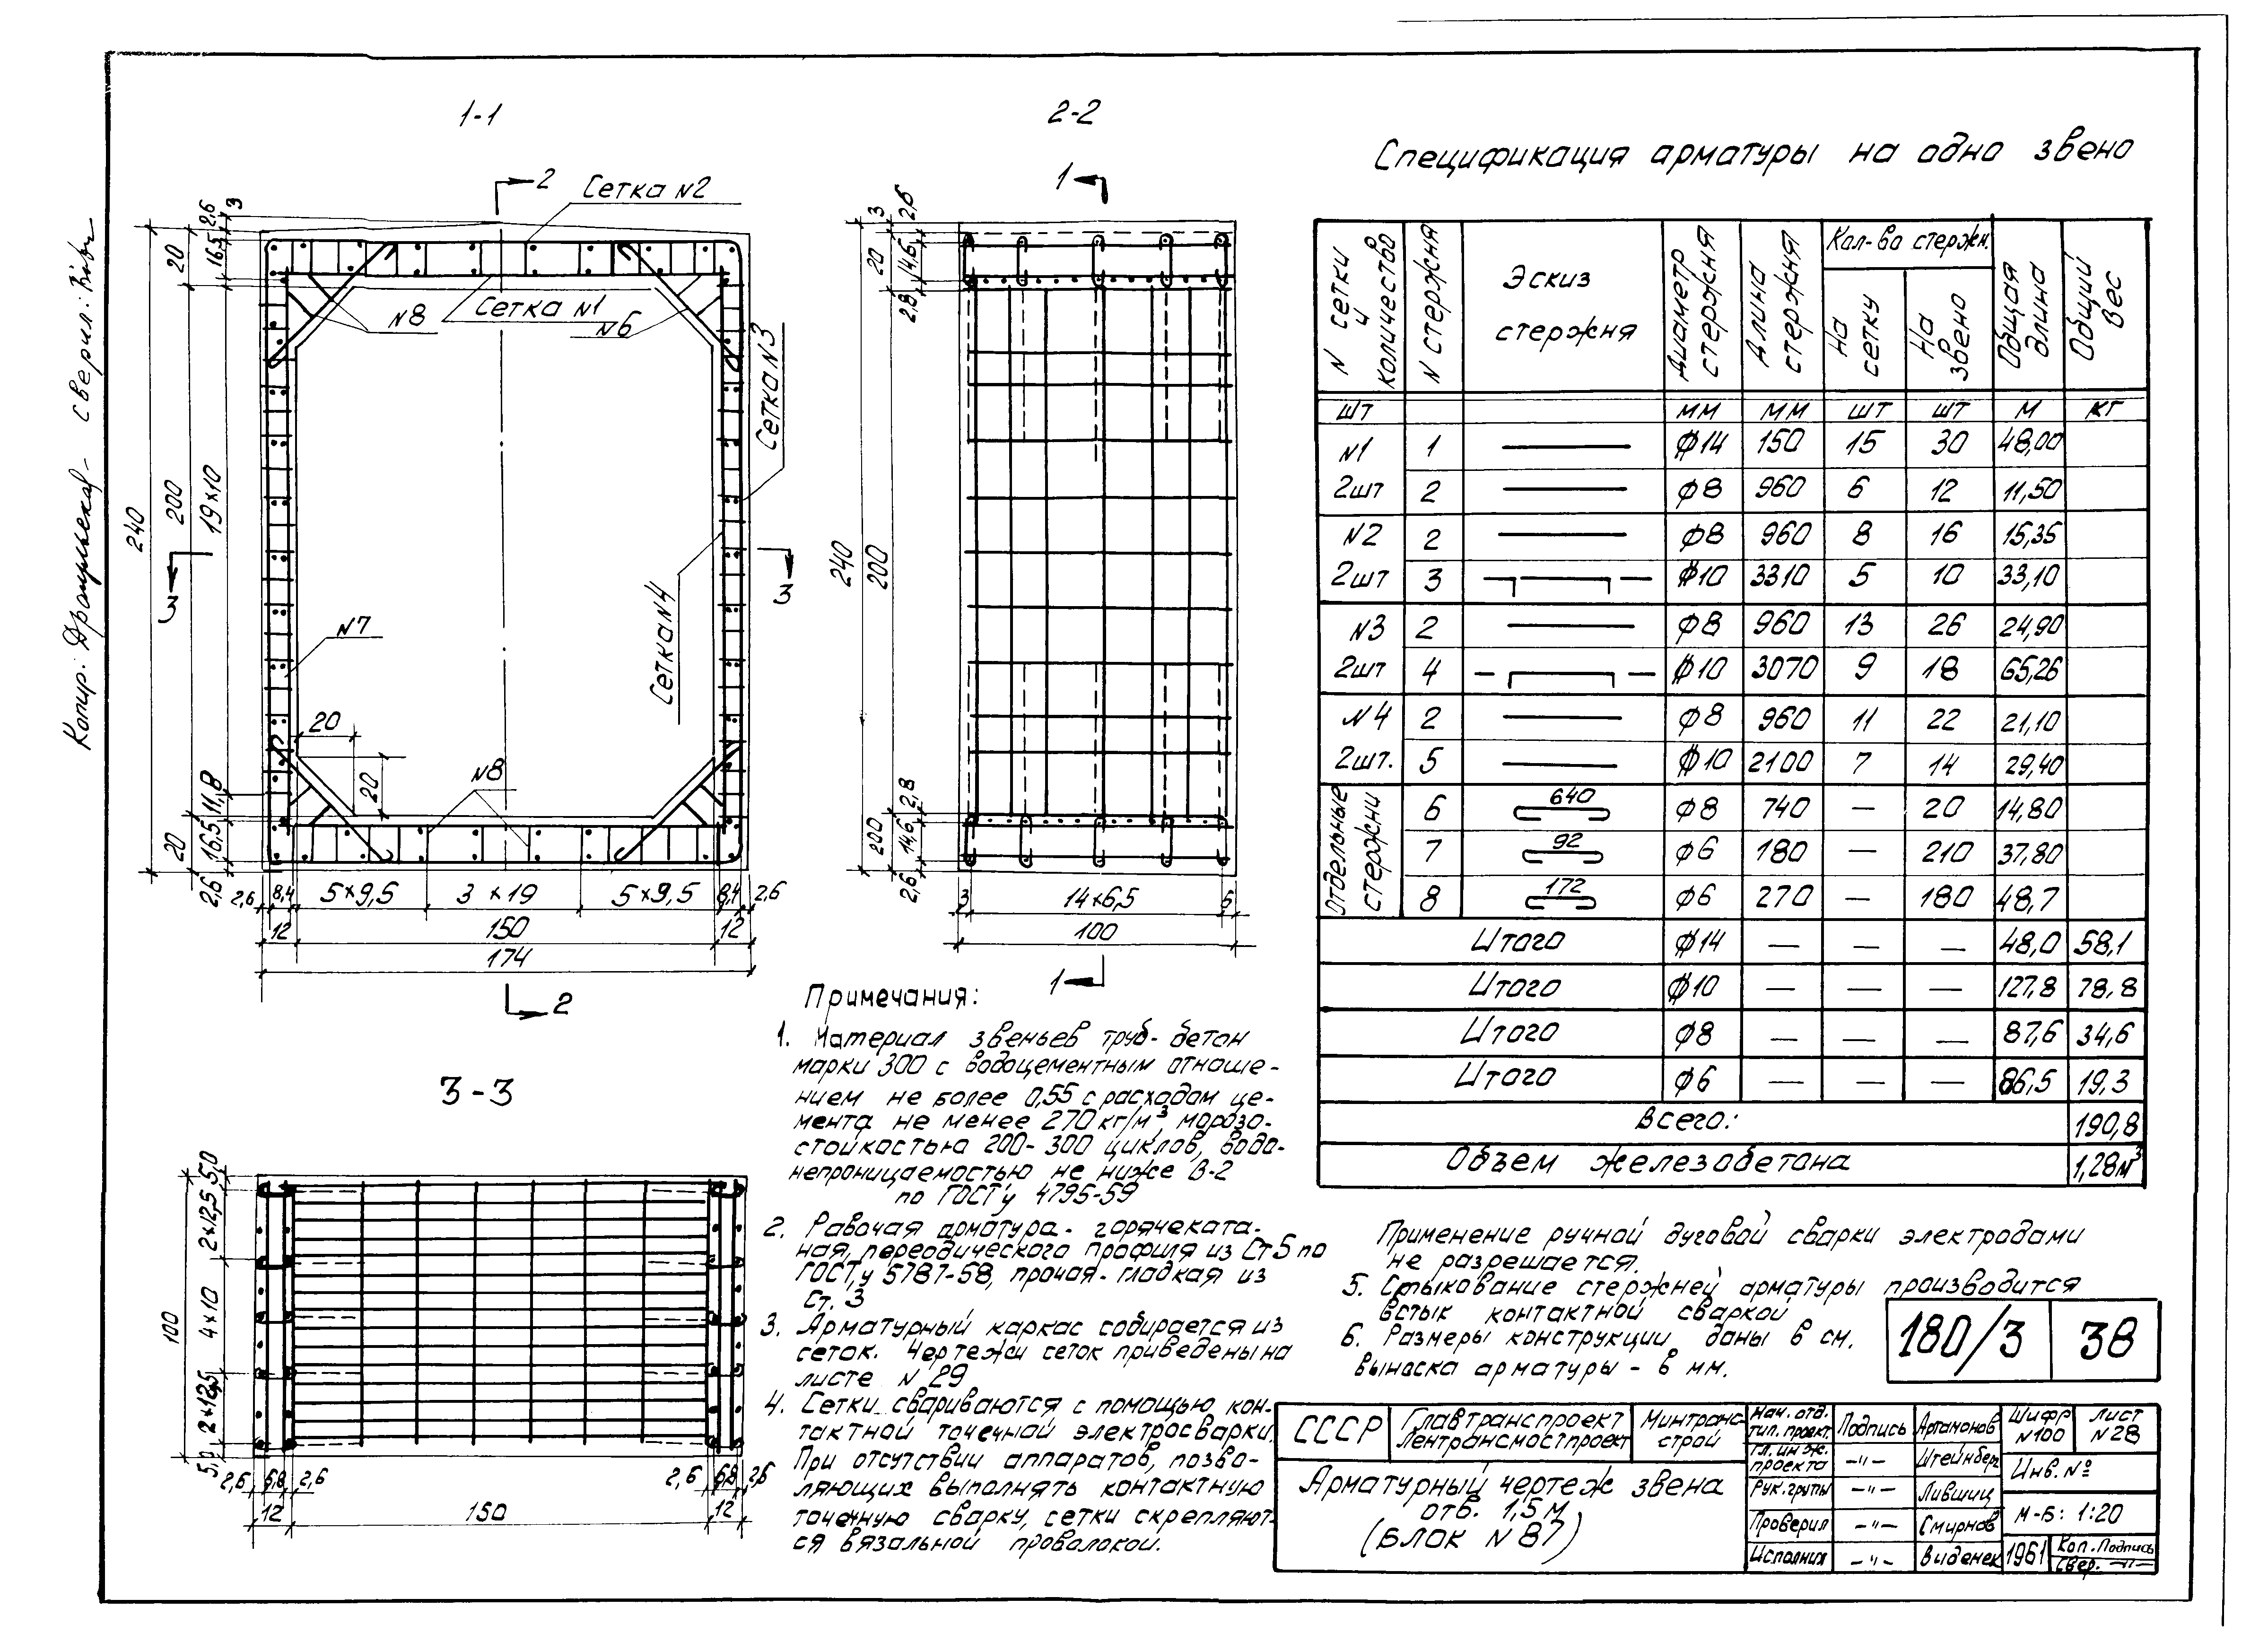 1-1
2-2
Спецификация арматуры на одно звено
2
Сетка №2
Сетка №1
№8
№6
Сетка №3
Сетка №4
№7
№8
20
20
3
3
2,6
3
20
16,5
240
200
19×10
11,8
16,5
20
2,6
2,6
8,4
5×9,5
3×19
5×9,5
8,4
2,6
12
150
12
174
2
1
3
2,6
20
14,6
2,8
240
200
2,8
14,6
200
2,6
3
14×6,5
6
100
1
3-3
5,0
2×12,5
100
4×10
2×12,5
5,0
2,6
6,8
2,6
2,6
6,8
2,6
12
150
12
N сетки и количество
N стержня
Эскиз стержня
Диаметр стержня
Длина стержня
Кол-во стержн.
На сетку
На звено
Общая длина
Общий вес
шт мм мм шт шт м кг
№1 1 ϕ14 150 15 30 48,00
2шт 2 ϕ8 960 6 12 11,50
№2 2 ϕ8 960 8 16 15,35
2шт 3 ϕ10 3310 5 10 33,10
№3 2 ϕ8 960 13 26 24,90
2шт 4 ϕ10 3070 9 18 65,26
№4 2 ϕ8 960 11 22 21,10
2шт. 5 ϕ10 2100 7 14 29,40
Отдельные стержни
6 640 ϕ8 740 — 20 14,80
7 92 ϕ6 180 — 210 37,80
8 172 ϕ6 270 — 180 48,7
Итого ϕ14 — — — 48,0 58,1
Итого ϕ10 — — — 127,8 78,8
Итого ϕ8 — — — 87,6 34,6
Итого ϕ6 — — — 86,5 19,3
Всего: 190,8
Объем железобетона 1,28м³
Примечания:
1. Материал звеньев труб- бетон
марки 300 с водоцементным отноше-
нием не более 0,55 с расходом це-
мента не менее 270 кг/м³, морозо-
стойкостью 200-300 циклов, водо-
непроницаемостью не ниже В-2
по ГОСТ'у 4795-59
2. Рабочая арматура- горячеката-
ная, переодического профиля из Ст5 по
ГОСТ'у 5781-58, прочая- гладкая из
Ст. 3
3. Арматурный каркас собирается из
сеток. Чертежи сеток приведены на
листе N 29
4. Сетки свариваются с помощью кон-
тактной точечной электросварки.
При отсутствии аппаратов, позво-
ляющих выполнять контактную
точечную сварку, сетки скрепляют-
ся вязальной проволокой.
Применение ручной дуговой сварки электродами
не разрешается.
5. Стыкование стержней арматуры производится
встык контактной сваркой
6. Размеры конструкции даны в см.
выноска арматуры - в мм.
180/3 38
СССР
Главтранспроект
Лентрансмостпроект
Минтранс-
строй
Арматурный чертеж звена
отв. 1,5м
(блок №87)
Нач. отд. тип. проект. Подпись Артамонов
Гл. инж. проекта —"— Штейнберг
Рук. групы —"— Лившиц
Проверил —"— Смирнов
Исполнил —"— Виденек
Шифр №100
Лист №28
Инв. №
М-б: 1:20
1961
Коп. Подпись
Свер. —"—
Копир:
сверил: